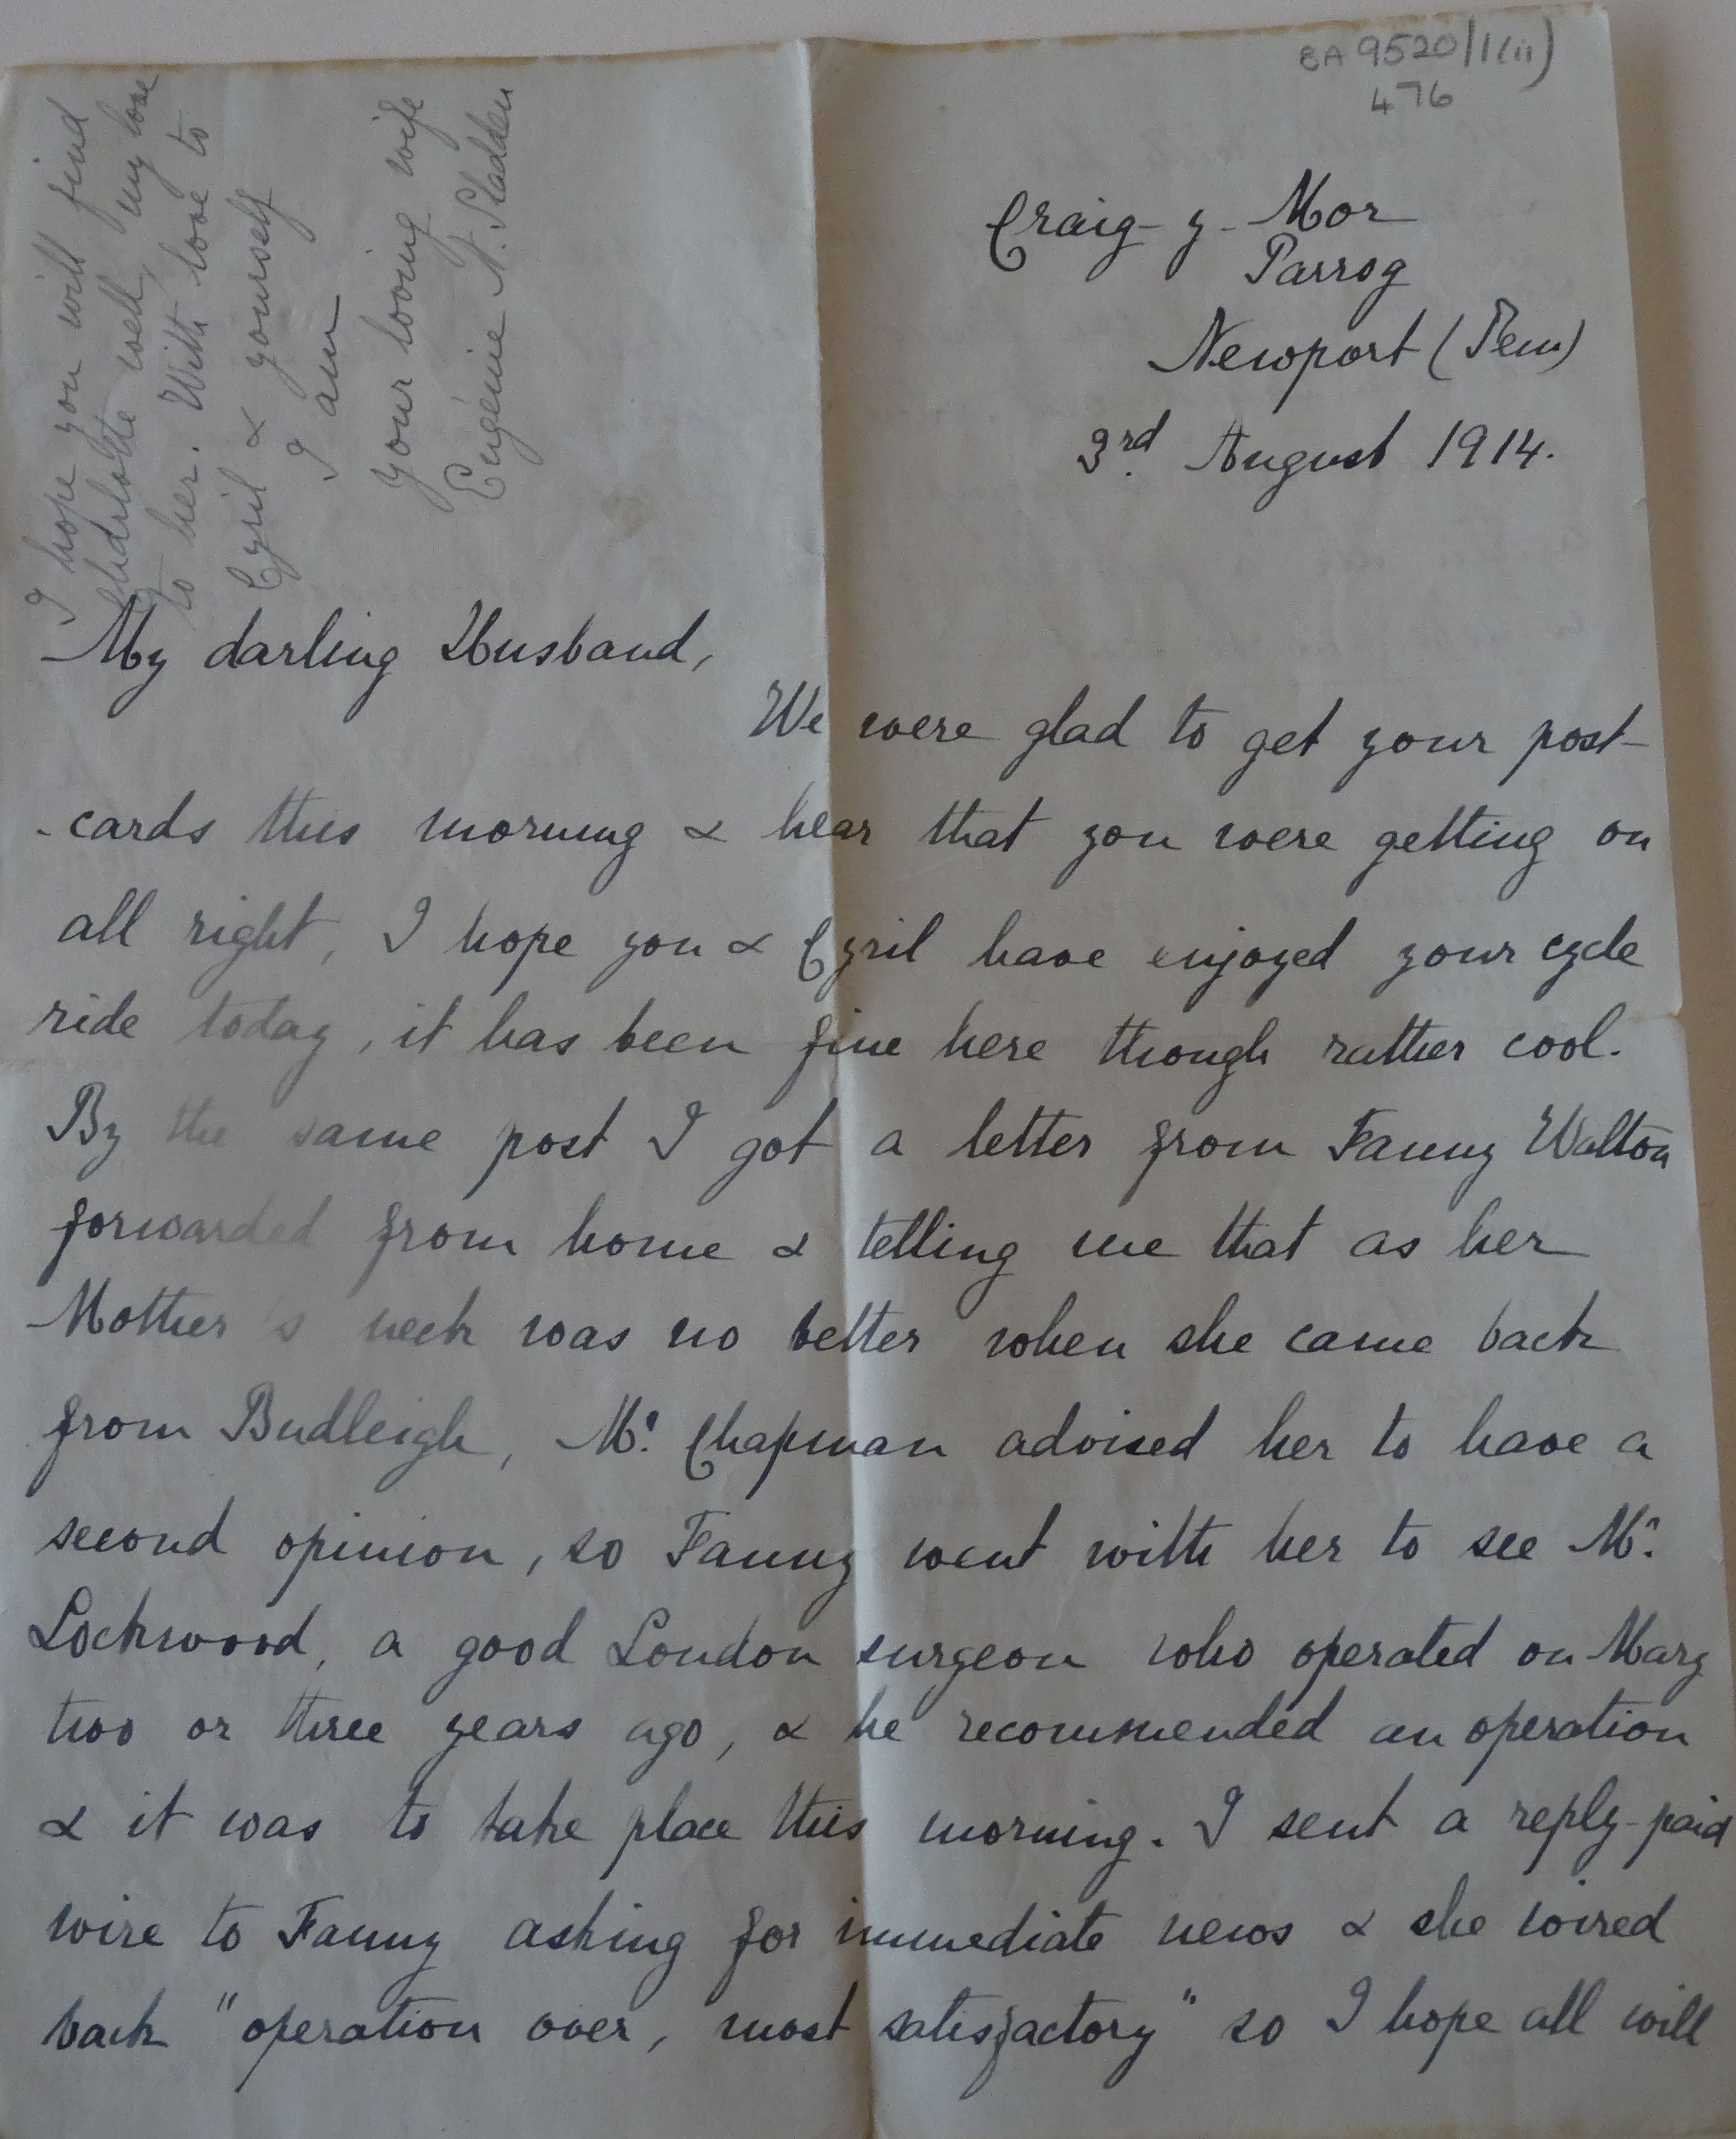 BA 9520/1(ii)
476
Craig-y-Mor
Parrog
Newport (Pem)
3rd August 1914.
My darling Husband,
We were glad to get your post-
-cards this morning & hear that you were getting on
all right, I hope you & Cyril have enjoyed your cycle
ride today, it has been fine here though rather cool.
By the same post I got a letter from Fanny Walton
forwarded from home & telling me that as her
Mother's neck was no better when she came back
from Budleigh, Mr. Chapman advised her to have a
second opinion, so Fanny went with her to see Mr.
Lockwood, a good London surgeon who operated on Mary
two or three years ago, & he recommended an operation
& it was to take place this morning. I sent a reply-paid
wire to Fanny asking for immediate news & she wired
back "operation over, most satisfactory" so I hope all will
I hope you will find
Charlotte well, my love
to her. With love to
Cyril & yourself
I am
your loving wife
Eugénie N. Sladden